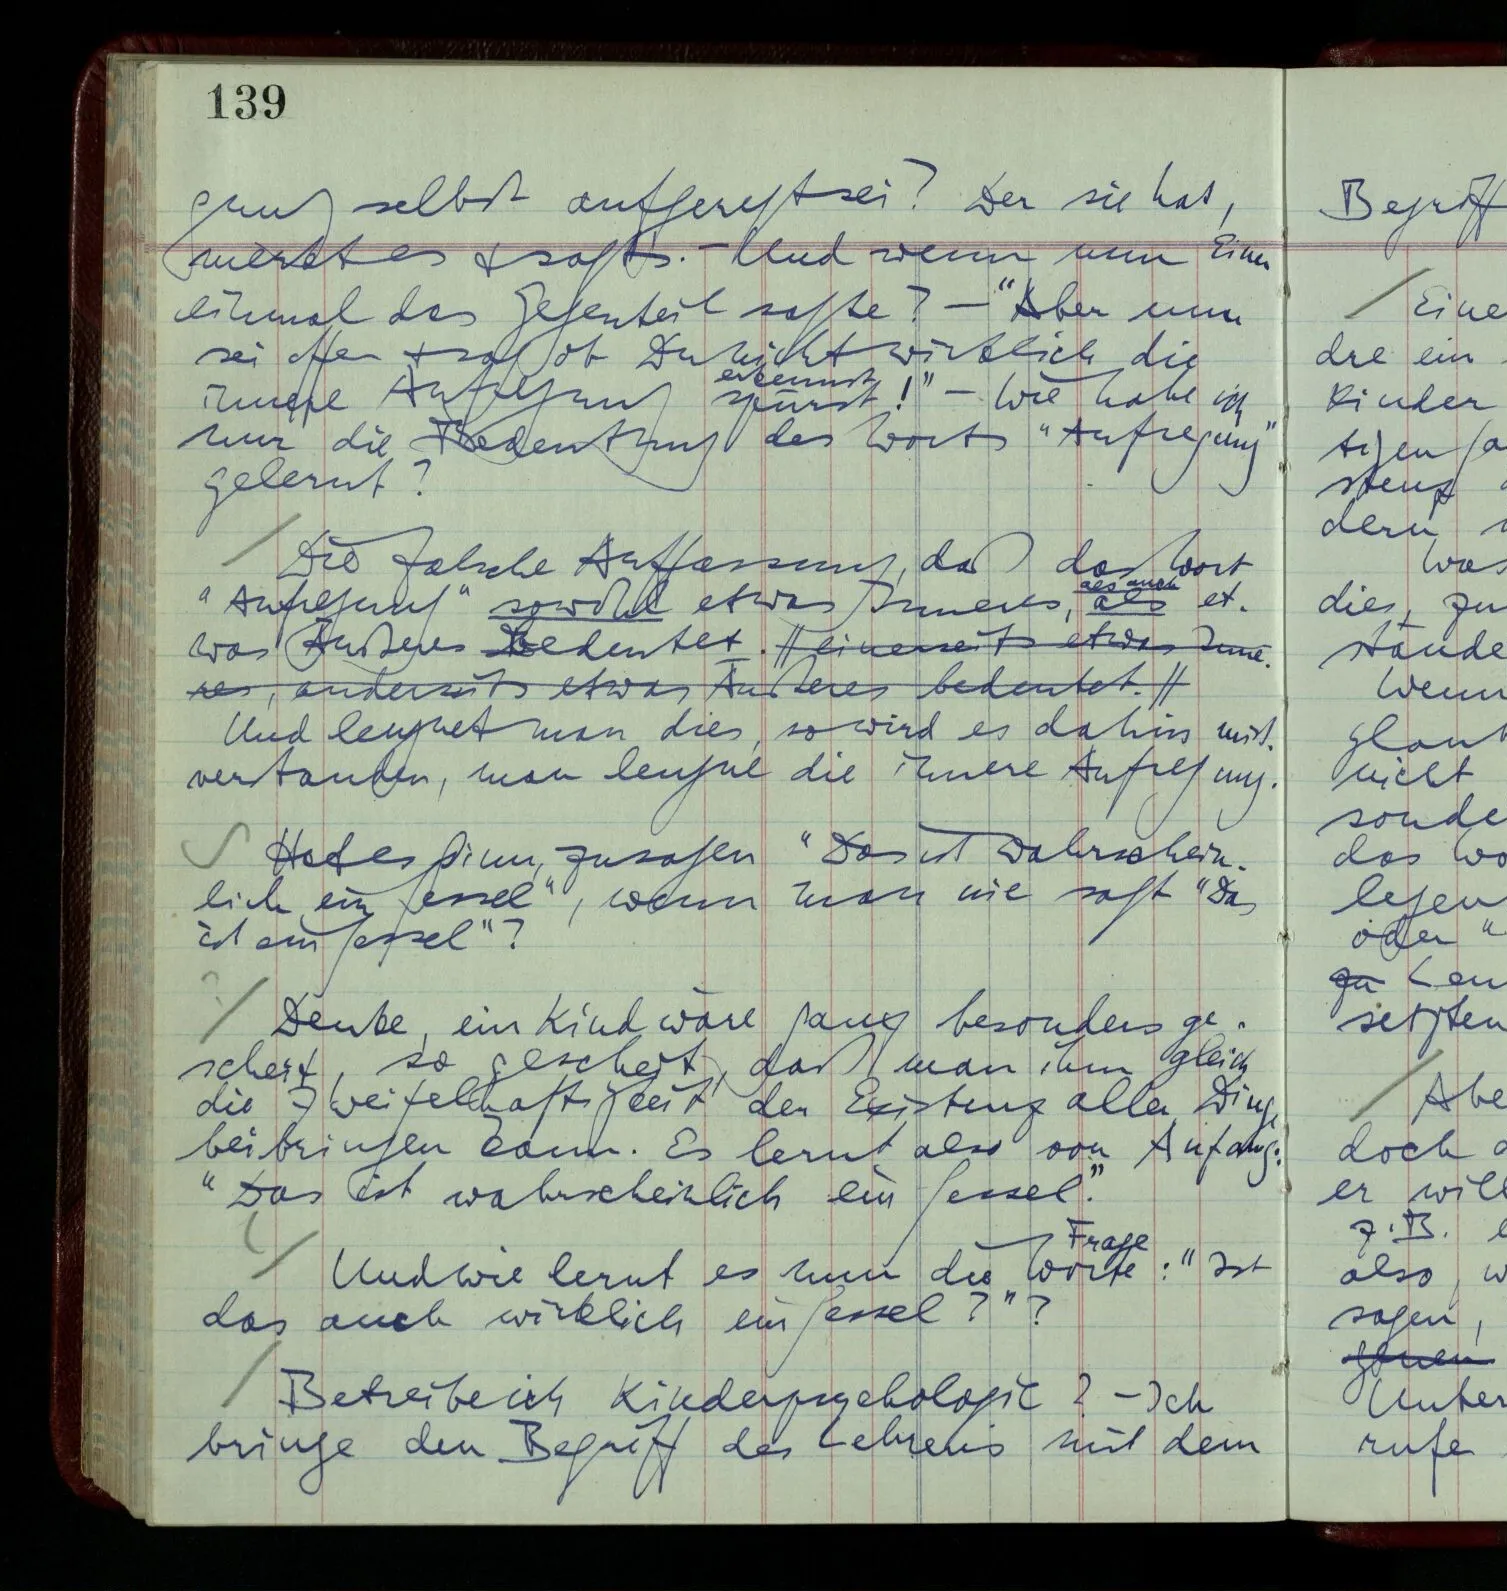 139
gung selbst aufgeregt sei? Der sie hat,
merkt es & sagt's. – Und wenn nun Einer
einmal das Gegenteil sagte? – "Aber nun
sei offen & sag ob Du nicht wirklich die
innere Aufregung spürst!" – Wie habe ich
erkennst
nur die Bedeutung des Worts "Aufregung"
gelernt?
/ Die falsche Auffassung, daß das Wort
"Aufregung" sowohl etwas Inneres, als et-
als auch
was Äußeres bedeutet. // einerseits etwas Inne-
res, anderseits etwas Äußeres bedeutet. //
Und leugnet man dies, so wird es dahin miß-
verstanden, man leugne die innere Aufregung.
S Hat es Sinn, zu sagen "Das ist wahrschein-
lich ein Sessel", wenn man nie sagt "Das
ist ein Sessel"?
? / Denke, ein Kind wäre ganz besonders ge-
scheit, so gescheit, daß man ihm gleich
die Zweifelhaftigkeit der Existenz aller Dinge
beibringen kann. Es lernt also von Anfang:
"Das ist wahrscheinlich ein Sessel."
Frage
/ Und wie lernt es nun die Worte: "Ist
das auch wirklich ein Sessel?"?
/ Betreibe ich Kinderpsychologie? – Ich
bringe den Begriff des Lehrens mit dem
Begriff
/ Eine
dre ein
Kinder
stenz
dern
Was
dies, zu
stände
Wenn
glaub
nicht
sonde
das Wo
legen
oder "
zu Leu
setzten
/ Abe
doch
er will
z.B. e
also, w
sagen,
Unter
rufe